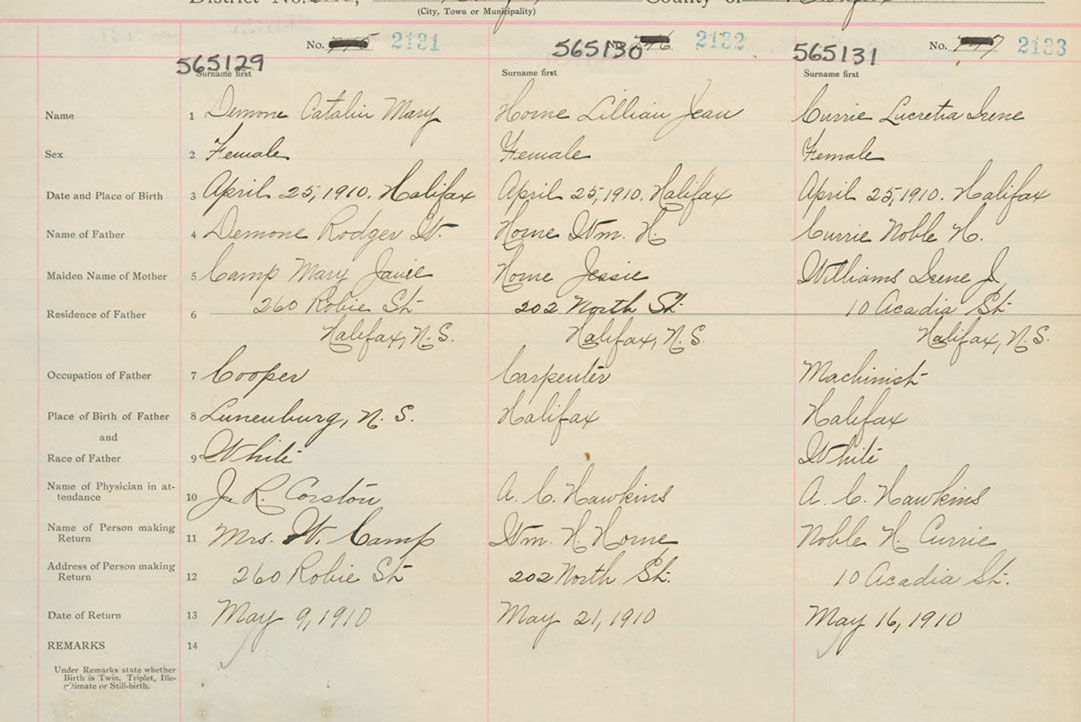 District No. County of
(City, Town or Municipality)
No. 2131 No. 2132 No. 2133
565129 565130 565131
Surname first Surname first Surname first
Name 1 Demone Catalin Mary Horne Lillian Jean Currie Lucretia Irene
Sex 2 Female Female Female
Date and Place of Birth 3 April 25, 1910. Halifax April 25, 1910. Halifax April 25, 1910. Halifax
Name of Father 4 Demone Rodger W. Horne Wm. H. Currie Noble H.
Maiden Name of Mother 5 Camp Mary Janie Horne Jessie Williams Irene J.
Residence of Father 6 260 Robie St. 202 North St. 10 Acadia St.
Halifax, N.S. Halifax, N.S. Halifax, N.S.
Occupation of Father 7 Cooper Carpenter Machinist
Place of Birth of Father 8 Lunenburg, N.S. Halifax Halifax
and
Race of Father 9 White White
Name of Physician in at-
tendance 10 J. R. Corston A. C. Hawkins A. C. Hawkins
Name of Person making
Return 11 Mrs. W. Camp Wm. H. Horne Noble H. Currie
Address of Person making
Return 12 260 Robie St. 202 North St. 10 Acadia St.
Date of Return 13 May 9, 1910 May 21, 1910 May 16, 1910
REMARKS 14
Under Remarks state whether
Birth is Twin, Triplet, Ille-
gitimate or Still-birth.